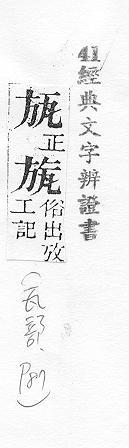 41經典文字辨證書
瓬正旊俗出攷工記
(瓦部, P81)